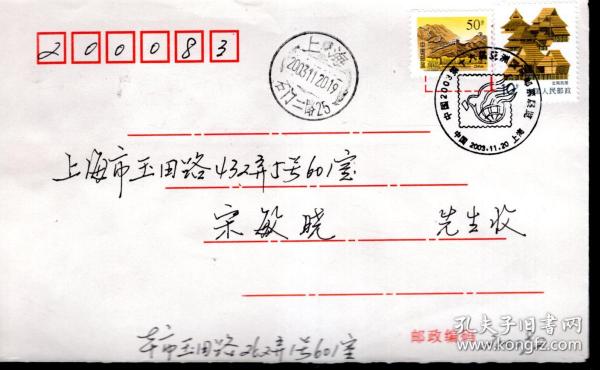 200083
上海
2003.11.20.19
50分
中国邮政
CHINA
中国人民邮政
中国 2003.11.20 上海
上海市玉田路432弄5号601室
宋敏晓 先生收
本市玉田路262弄1号601室
邮政编码
孔夫子旧书网
www.kongfz.com